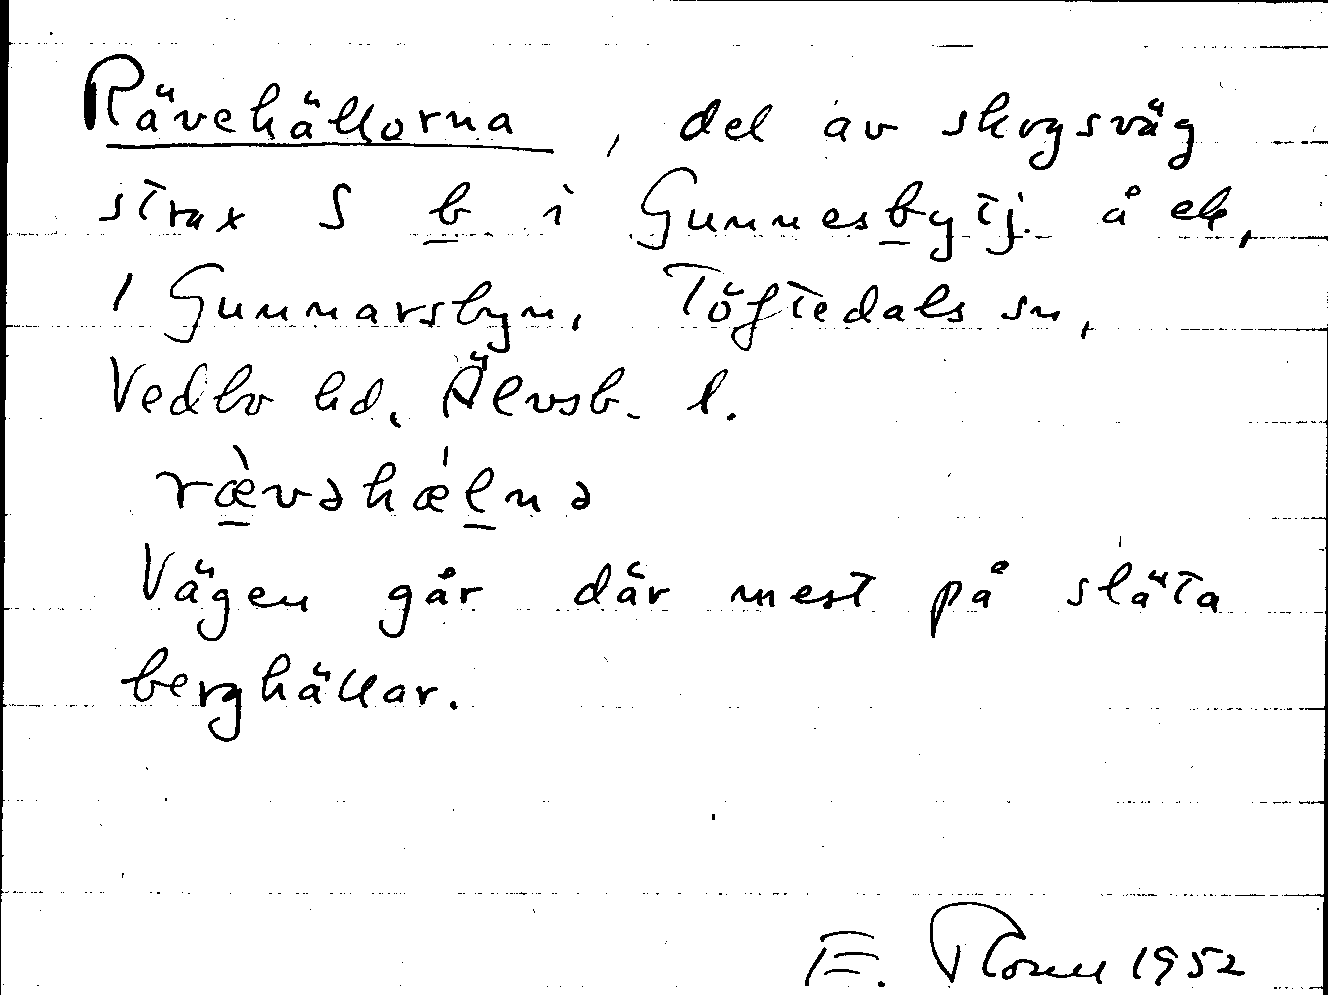 Rävehällorna, del av skogsväg
strax S b i Gunnesbytj. å ek,
1 Gunnarsbyn, Töftedals sn,
Vedbo hd, Älvsb. l.
rævəhælnə
Vägen går där mest på släta
berghällar.
E. 1952